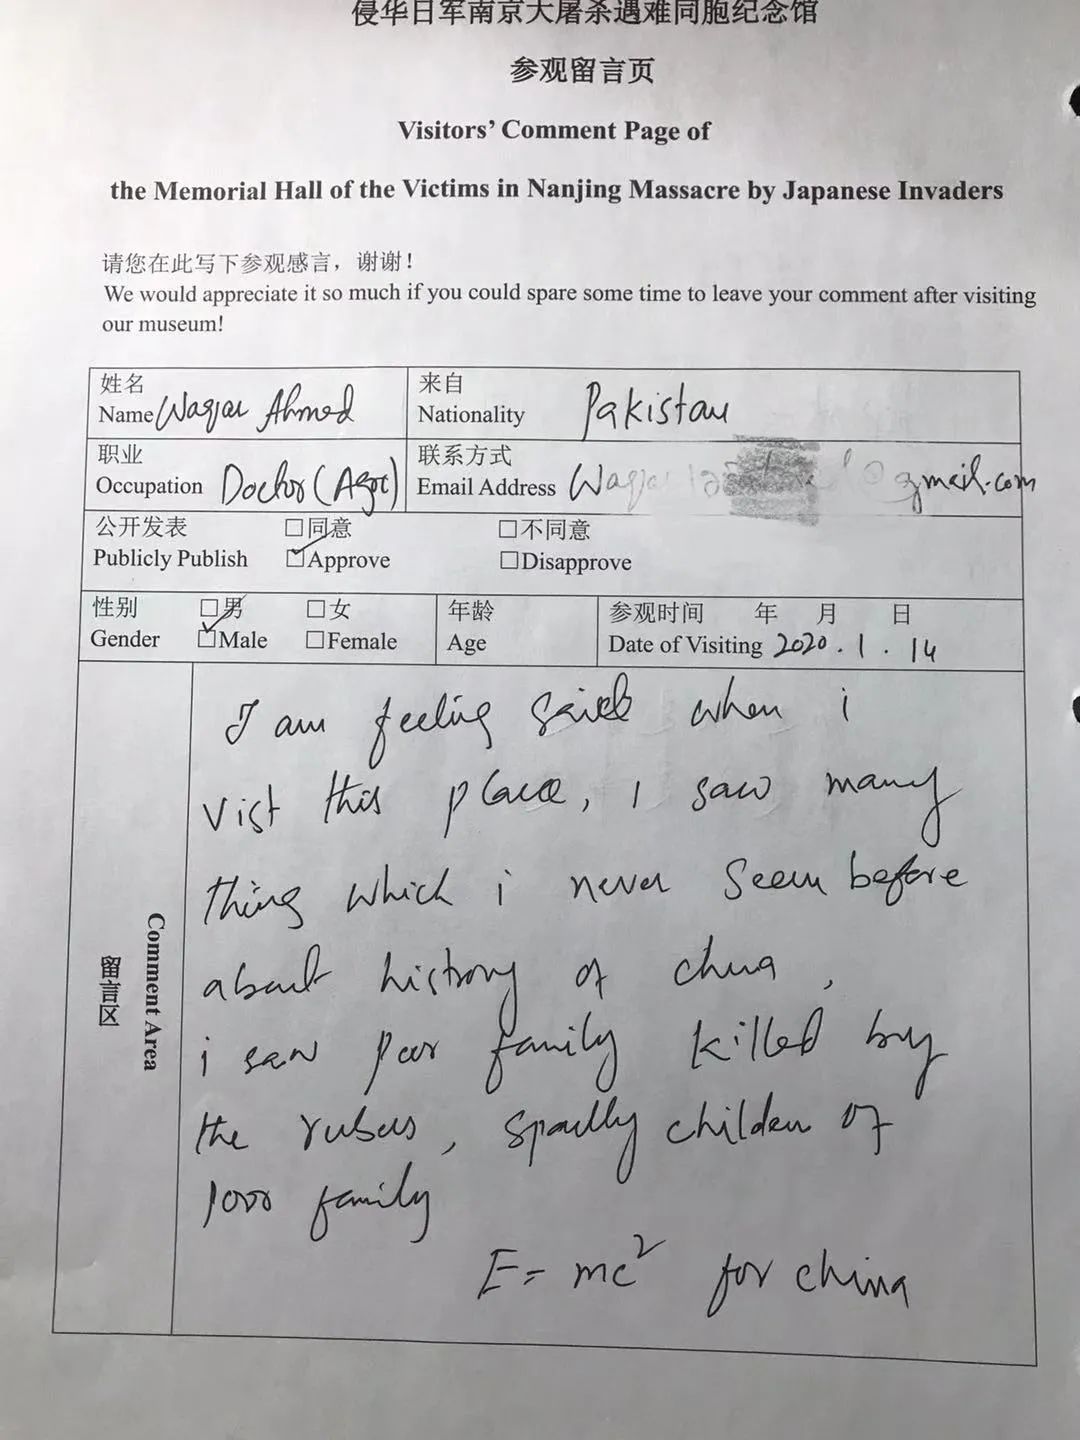 侵华日军南京大屠杀遇难同胞纪念馆
参观留言页
Visitors' Comment Page of
the Memorial Hall of the Victims in Nanjing Massacre by Japanese Invaders
请您在此写下参观感言，谢谢！
We would appreciate it so much if you could spare some time to leave your comment after visiting
our museum!
姓名
Name Waqar Ahmed
来自
Nationality Pakistan
职业
Occupation Doctor (Agri)
联系方式
Email Address @gmail.com
公开发表 □同意 □不同意
Publicly Publish □Approve □Disapprove
性别 □男 □女
Gender □Male □Female
年龄
Age
参观时间 年 月 日
Date of Visiting 2020.1.14
留言区
Comment Area
I am feeling when i
vist this place, i saw many
thing which i never seen before
about history of china,
i saw poor family killed by
the , childen of
poor family
E=mc² for china